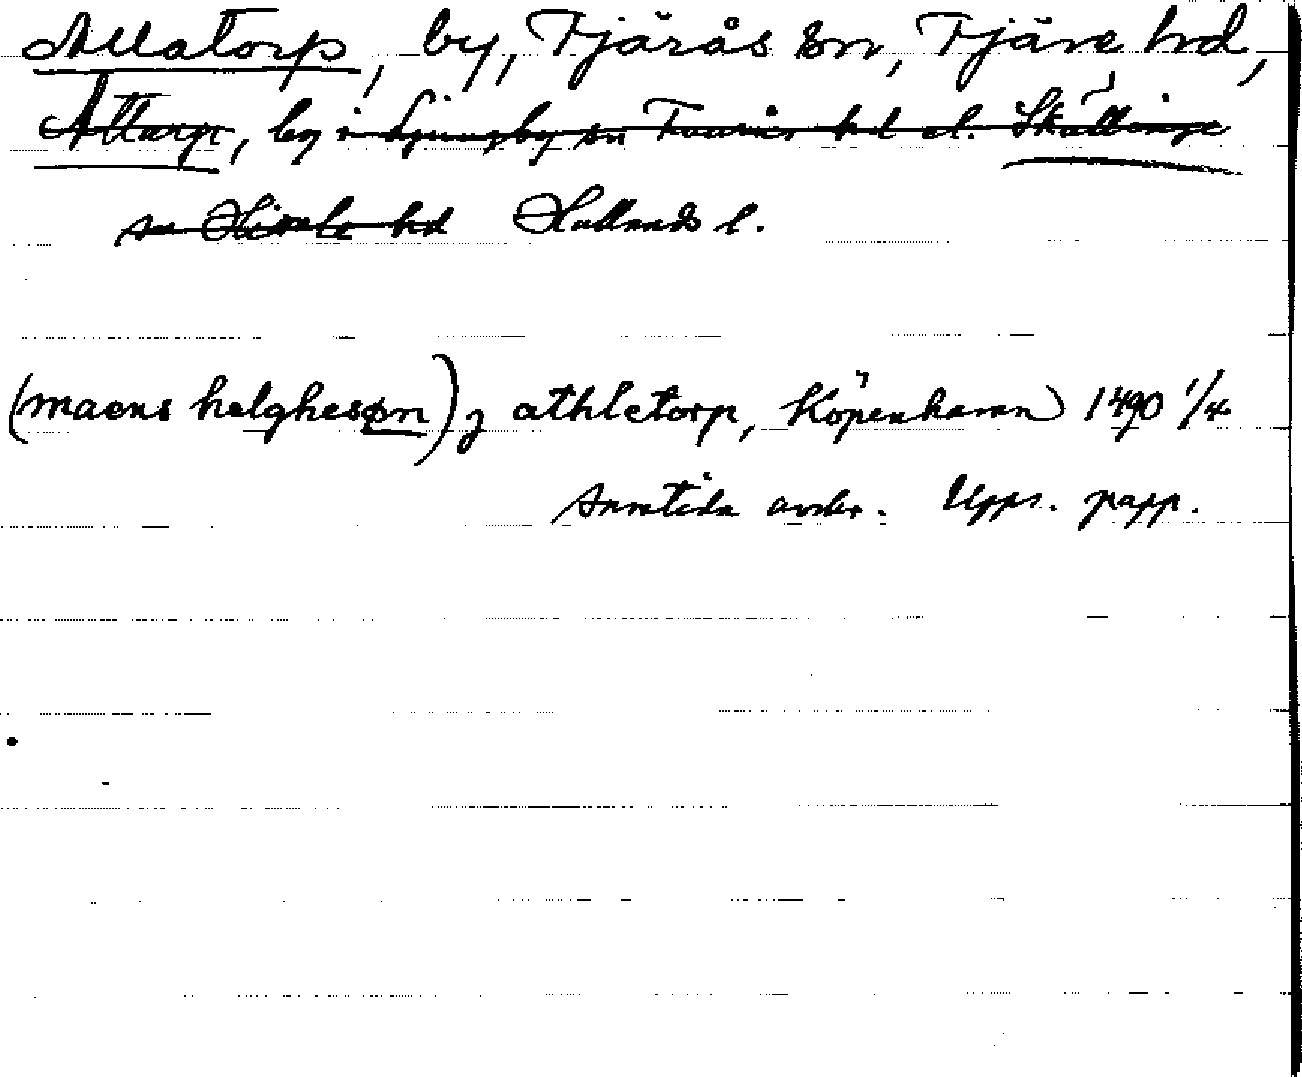 Allatorp, by, Tjärås sn, Fjäre hd,
Attarp, by i Ljungby sn Faurås hd el. Skällinge
sn Himle hd Hallands l.
(maens helghesøn) j athletorp, Köpenhamn 1490 1/4
Samtida avskr. Upps. papp.